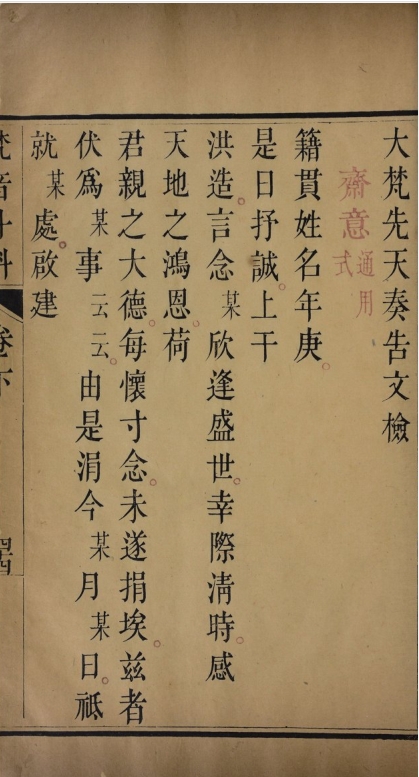 大梵先天奏告文檢
齋意通用式
籍貫姓名年庚
是日抒誠上干
洪造言念某欣逢盛世幸際清時感
天地之鴻恩荷
君親之大德每懷寸念未遂捐埃兹者
伏爲某事云云由是涓今某月某日祗
就某處啟建
梵音斗科
卷下